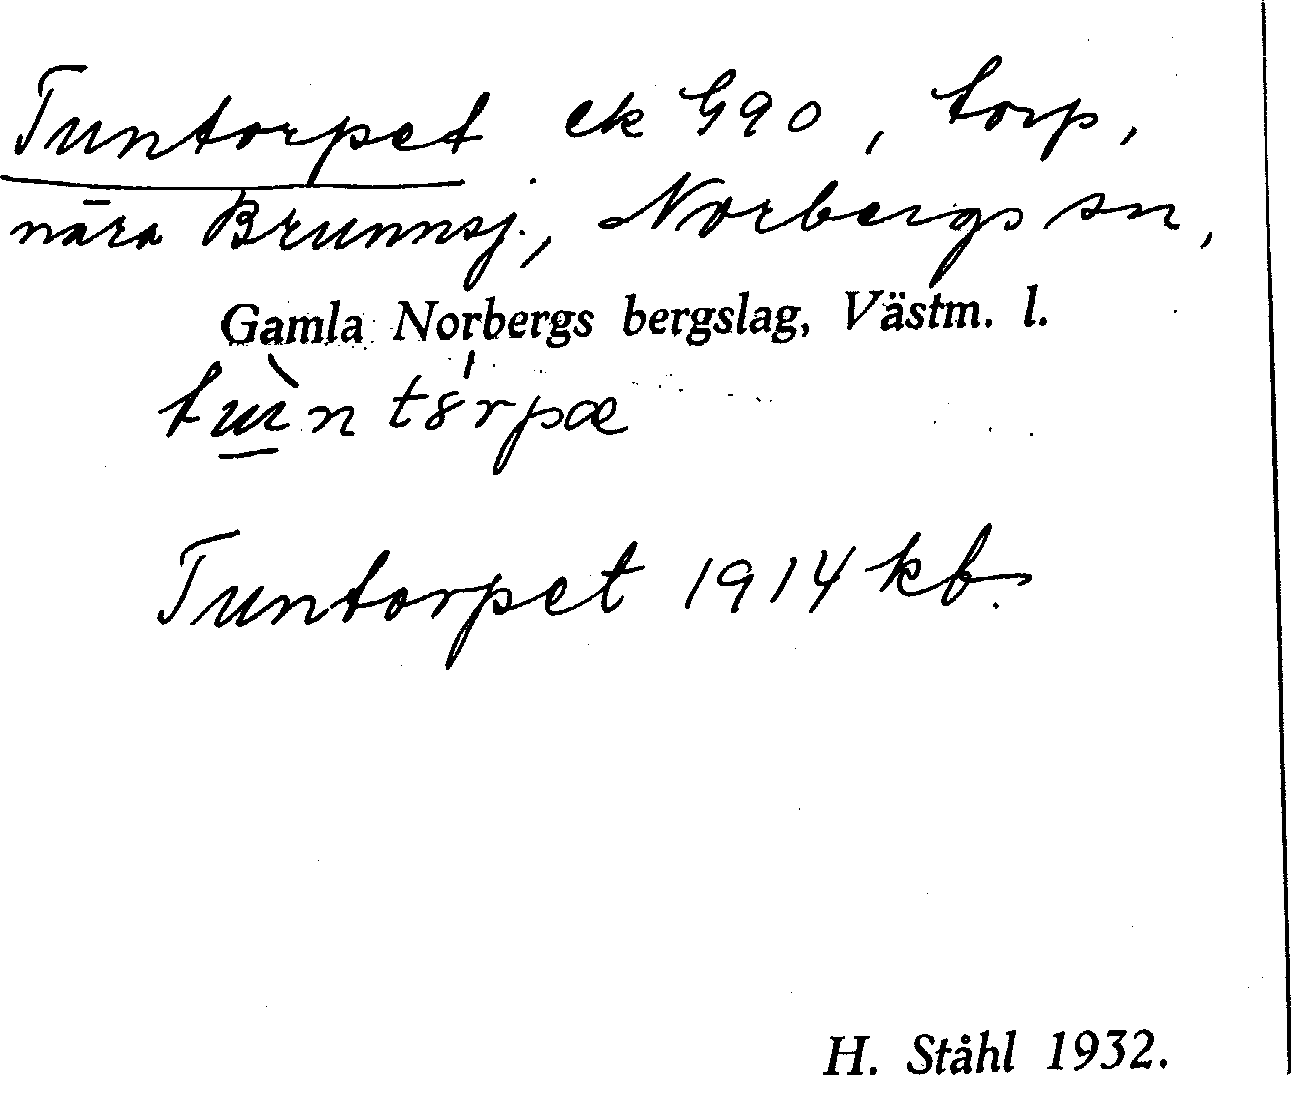 Tuntorpet ek G90, torp,
nära Brunnsj., Norbergs sn,
Gamla Norbergs bergslag, Västm. l.
Tuntorpet 1914 kb.
H. Ståhl 1932.